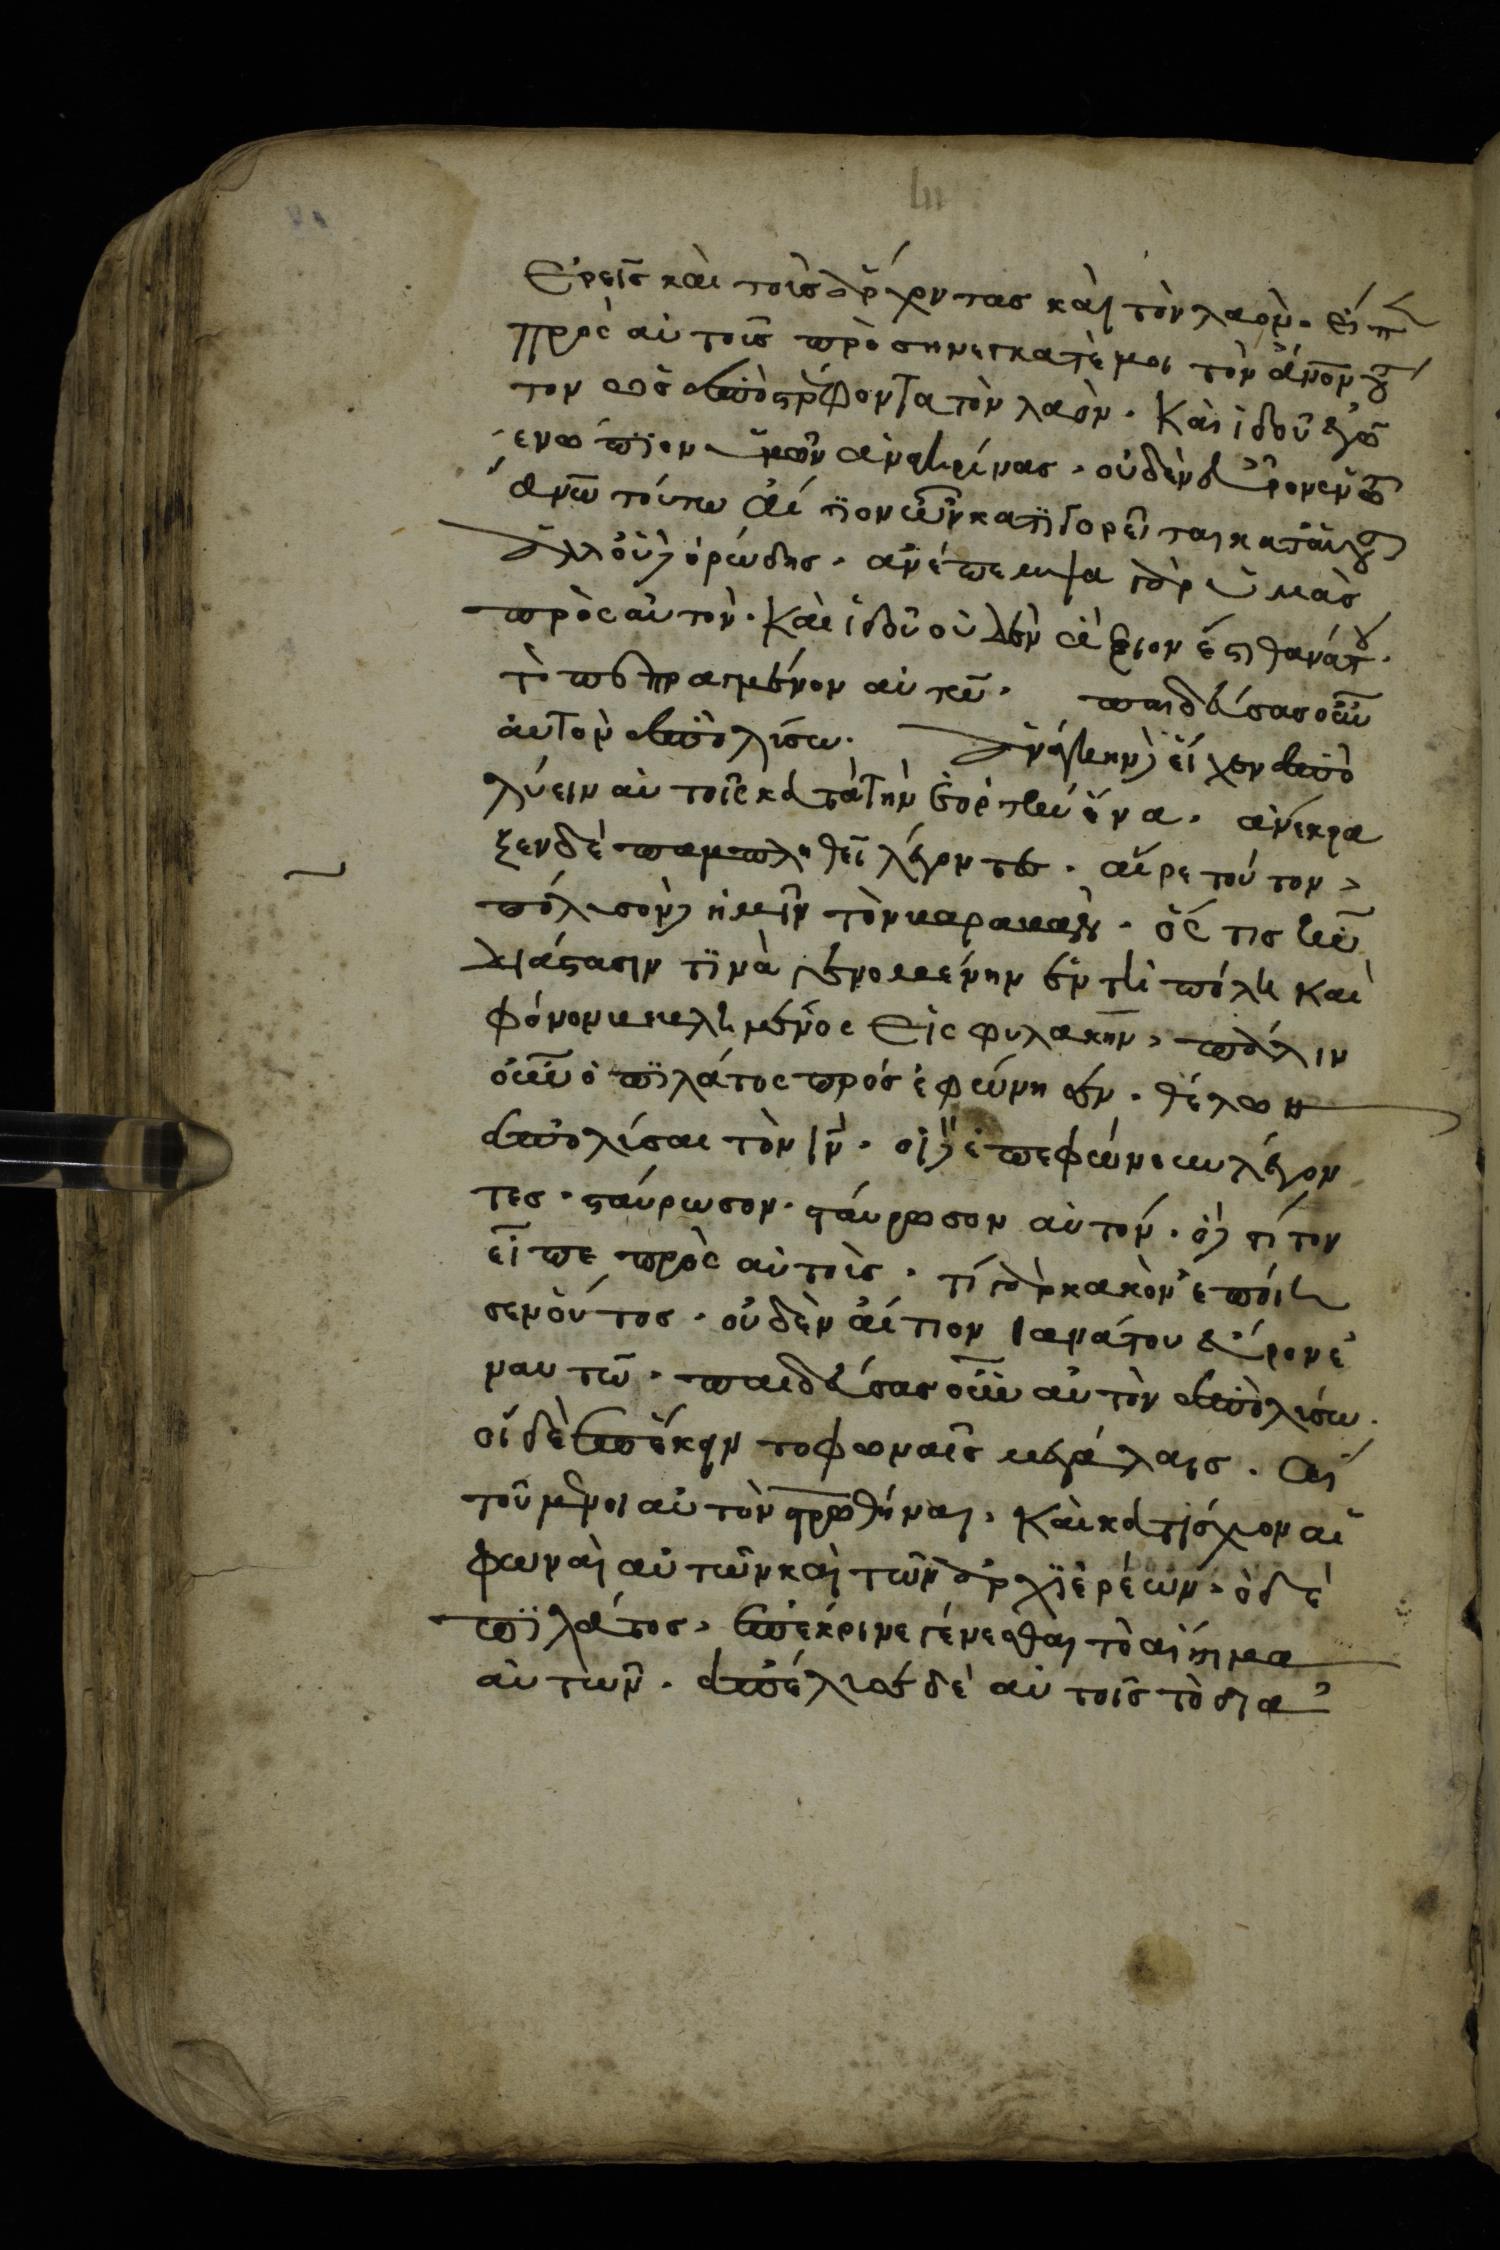 ἐρεῖς καὶ τοὺς ἄρχοντας καὶ τὸν λαὸν. εἶπε
πρὸς αὐτοῖς προσηνέγκατέ μοι τὸν ἄνον τοῦ
τον ὡς ἀποστρέφοντα τὸν λαὸν. καὶ ἰδοῦ ἐγὼ
ἐνώπϊον ὑμῶν ἀνακρίνας. οὐδὲν εὗρον ἐν τῶ
ἀνω τούτω αἴτϊον ὧν κατϊγορεῖται κατ αὐτοῦ
ἀλλ οὐδὲ ὁ ρώδης. ἀνέπεμψα γὰρ ὑμὰς
πρὸς αὐτὸν. καὶ ἰδοῦ οὐδὲν ἄξιον ἐστὶ θανάτου.
τὸ πεπραγμένον αὐτῶ. παιδεύσας οὖν
αὐτὸν ἀπολίσω. ἀνάγκην δὲ εἶχεν ἀπὸ
λύειν αὐτοῖς κατὰ τὴν ἑορτὴν ἕνα. ἀνέκρα
ξεν δὲ παμπληθεῖ λέγοντες. αἶρε τούτον
πόλισον δὲ ἡμῖν τὸν βαραβὰν. ὅς τις ἦν
διάστασιν τϊνὰ γενομένην ἐν τῆ πόλει καὶ
φόνον βεβλιμένος εἰς φυλακὴν, πάλιν
οὖν ὁ πϊλάτος πρόσἐφώνησεν. θέλων
ἀπολίσαι τὸν ιν. οἱ δὲ ἐπεφώνουν λέγον
τες. σταύρωσον. σταύρωσον αὐτόν. ὁ δὲ τρίτον
εἶπε πρὸς αὐτοὶς. τί γὰρ κακὸν ἐποίη
σεν οὗτος. οὐδὲν αἴτιον θανάτου εὗρον ἐ
ν αυτῶ. παιδεύσας οὖν αὐτὸν ἀπολίσω.
οἱ δὲ ἐπέκειντο φωναῖς μεγάλαις. αἰ
τούμενοι αὐτὸν στρωθῆναι. καὶ κατίσχυον αἱ
φωναὶ αὐτῶν καὶ τῶν ἀρχϊερέων. ὁ δὲ
πϊλάτος, ἐπέκρινε γένεσθαι τὸ αἴτημα
αὐτῶν. ἀπέλυσε δὲ αὐτοῖς τὸ δια